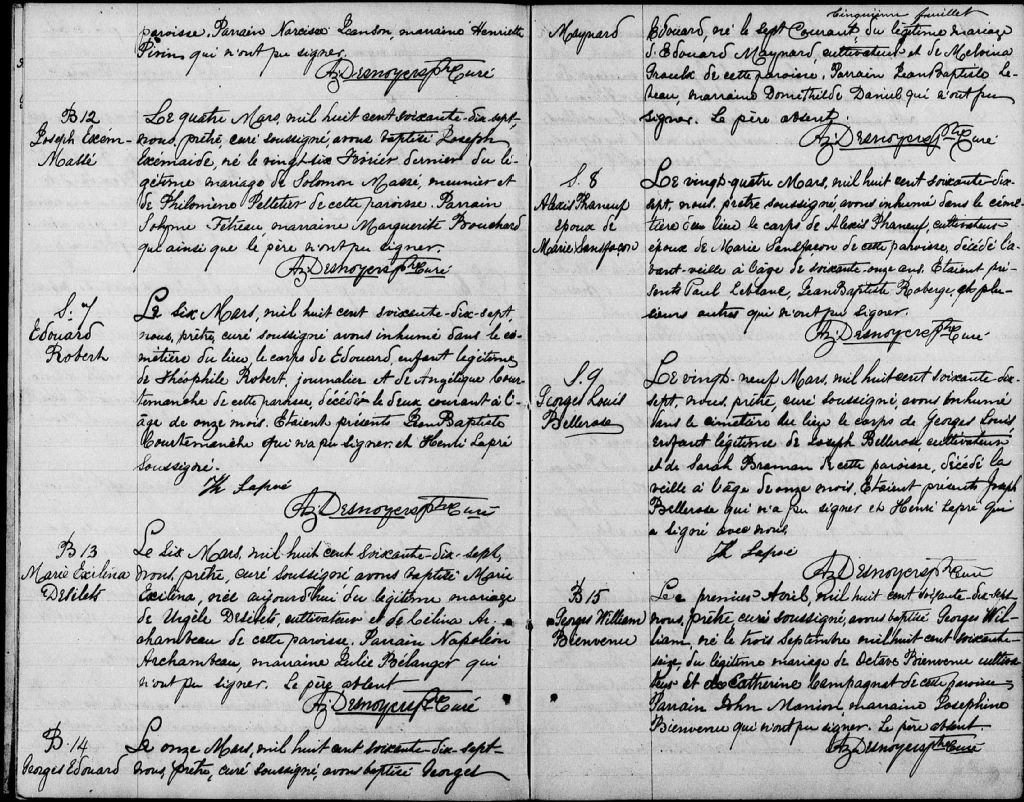 paroisse. Parrain Narcisse Jeanson, marraine Henriette
Pivin qui n'ont pu signer.
Az. Desnoyers ptre Curé
B 12
Joseph Exém-
Massé
Le quatre Mars, mil huit cent soixante-dix-sept,
nous, prêtre, curé soussigné, avons baptisé Joseph
Exémaide, né le vingt-six Février dernier du lé-
gitime mariage de Solomon Massé, meunier et
de Philomène Pelletier de cette paroisse. Parrain
Solyme Fétreau, marraine Marguerite Bouchard
qui ainsi que le père n'ont pu signer.
Az. Desnoyers ptre Curé
S. 7
Edouard
Robert
Le six Mars, mil huit cent soixante-dix-sept,
nous, prêtre, curé soussigné avons inhumé dans le ci-
métière du lieu, le corps de Edouard, enfant légitime
de Théophile Robert, journalier et de Angélique Cour-
temanche de cette paroisse, décédé le deux courant à l'
âge de onze mois. Etaient présents Jean Baptiste
Courtemanche qui n'a pu signer et Henri Lapré
soussigné.
H Lapré
Az. Desnoyers ptre Curé
B 13
Marie Exilina
Désilets
Le six Mars, mil huit cent soixante-dix-sept,
nous, prêtre, curé soussigné avons baptisé Marie
Exilina, née aujourd'hui du légitime mariage
de Urgèle Désilets, cultivateur et de Célina Ar-
chambeau de cette paroisse, Parrain Napoléon
Archambeau, marraine Julie Bélanger qui
n'ont pu signer. Le père absent
Az. Desnoyers ptre Curé
B. 14
Georges Edouard
Le onze Mars, mil huit cent soixante-dix-sept
nous, prêtre, curé soussigné, avons baptisé Georges
Cinquième feuillet
Maynard
Edouard, né le sept Courant, du légitime mariage
d'Edouard Maynard, cultivateur et de Melvina
Graulx de cette paroisse, Parrain Jean Baptiste Le-
beau, marraine Domethilde Daniel qui n'ont pu
signer. Le père absent.
Az. Desnoyers ptre Curé
S. 8
Alexis Phaneuf
époux de
Marie Sansfaçon
Le vingt quatre Mars, mil huit cent soixante-dix-
sept, nous, prêtre soussigné, avons inhumé dans le cime-
tière du lieu le corps de Alexis Phaneuf, cultivateur
époux de Marie Sansfaçon de cette paroisse, décédé l'a-
vant-veille à l'âge de soixante-onze ans. Etaient pré-
sents Paul Leblanc, Jean Baptiste Roberge, et plu-
sieurs autres qui n'ont pu signer.
Az. Desnoyers ptre Curé
S. 9
Georges Louis
Bellerose
Le vingt-neuf Mars, mil huit cent soixante-dix-
sept, nous, prêtre, curé soussigné, avons inhumé
dans le cimetière du lieu le corps de Georges Louis
enfant légitime de Joseph Bellerose, cultivateur
et de Sarah Braman de cette paroisse, décédé la
veille à l'âge de onze mois. Etaient présents Joseph
Bellerose qui n'a pu signer et Henri Lapré qui
a signé avec nous.
H Lapré
Az. Desnoyers ptre Curé
B 15
Georges William
Bienvenue
Le premier Avril, mil huit cent soixante-dix-sept
nous, prêtre curé soussigné, avons baptisé Georges Wil-
liam, né le trois Septembre mil huit cent soixante-
seize, du légitime mariage de Octave Bienvenue cultiva-
teur et de Catherine Campagnat de cette paroisse
Parrain John Manion, marraine Josephine
Bienvenue qui n'ont pu signer. Le père absent.
Az. Desnoyers ptre Curé